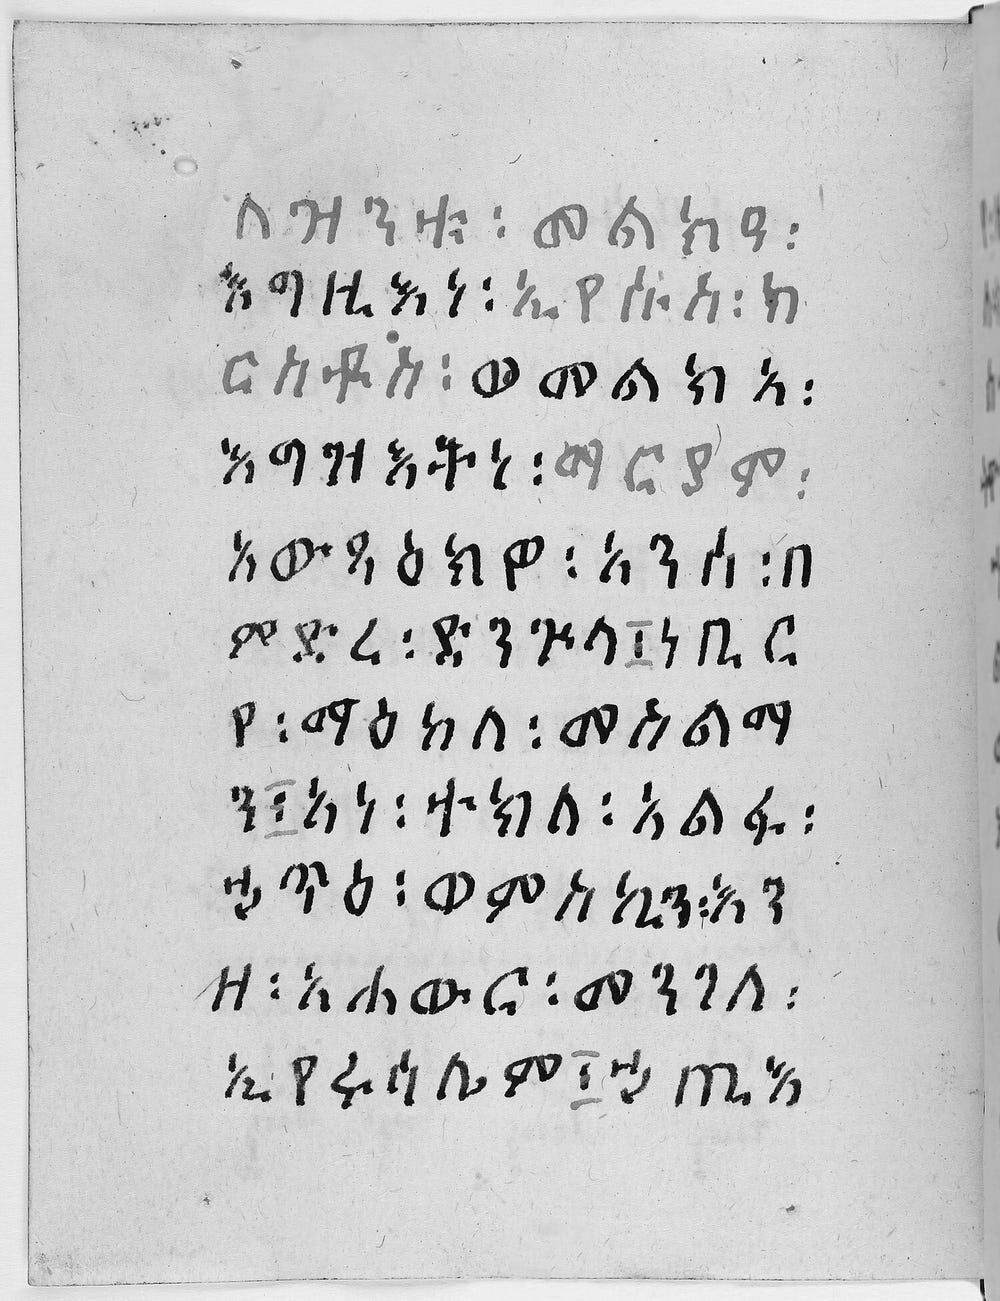 ለዝንቱ፡መልክዐ፡
እግዚእነ፡ኢየሱስ፡ክ
ርስቶስ፡ወመልክአ፡
እግዝእትነ፡ማርያም፡
አውጻዕክዎ፡አንሰ፡በ
ምድረ፡ድንጕላ፩ነቢር
የ፡ማዕከለ፡መስልማ
ን፩አነ፡ተክለ፡አልፋ፡
ቷጥዕ፡ወምስኪን፡እን
ዘ፡አሐውር፡መንገለ፡
ኢየሩሳሌም፩ቷጢእ